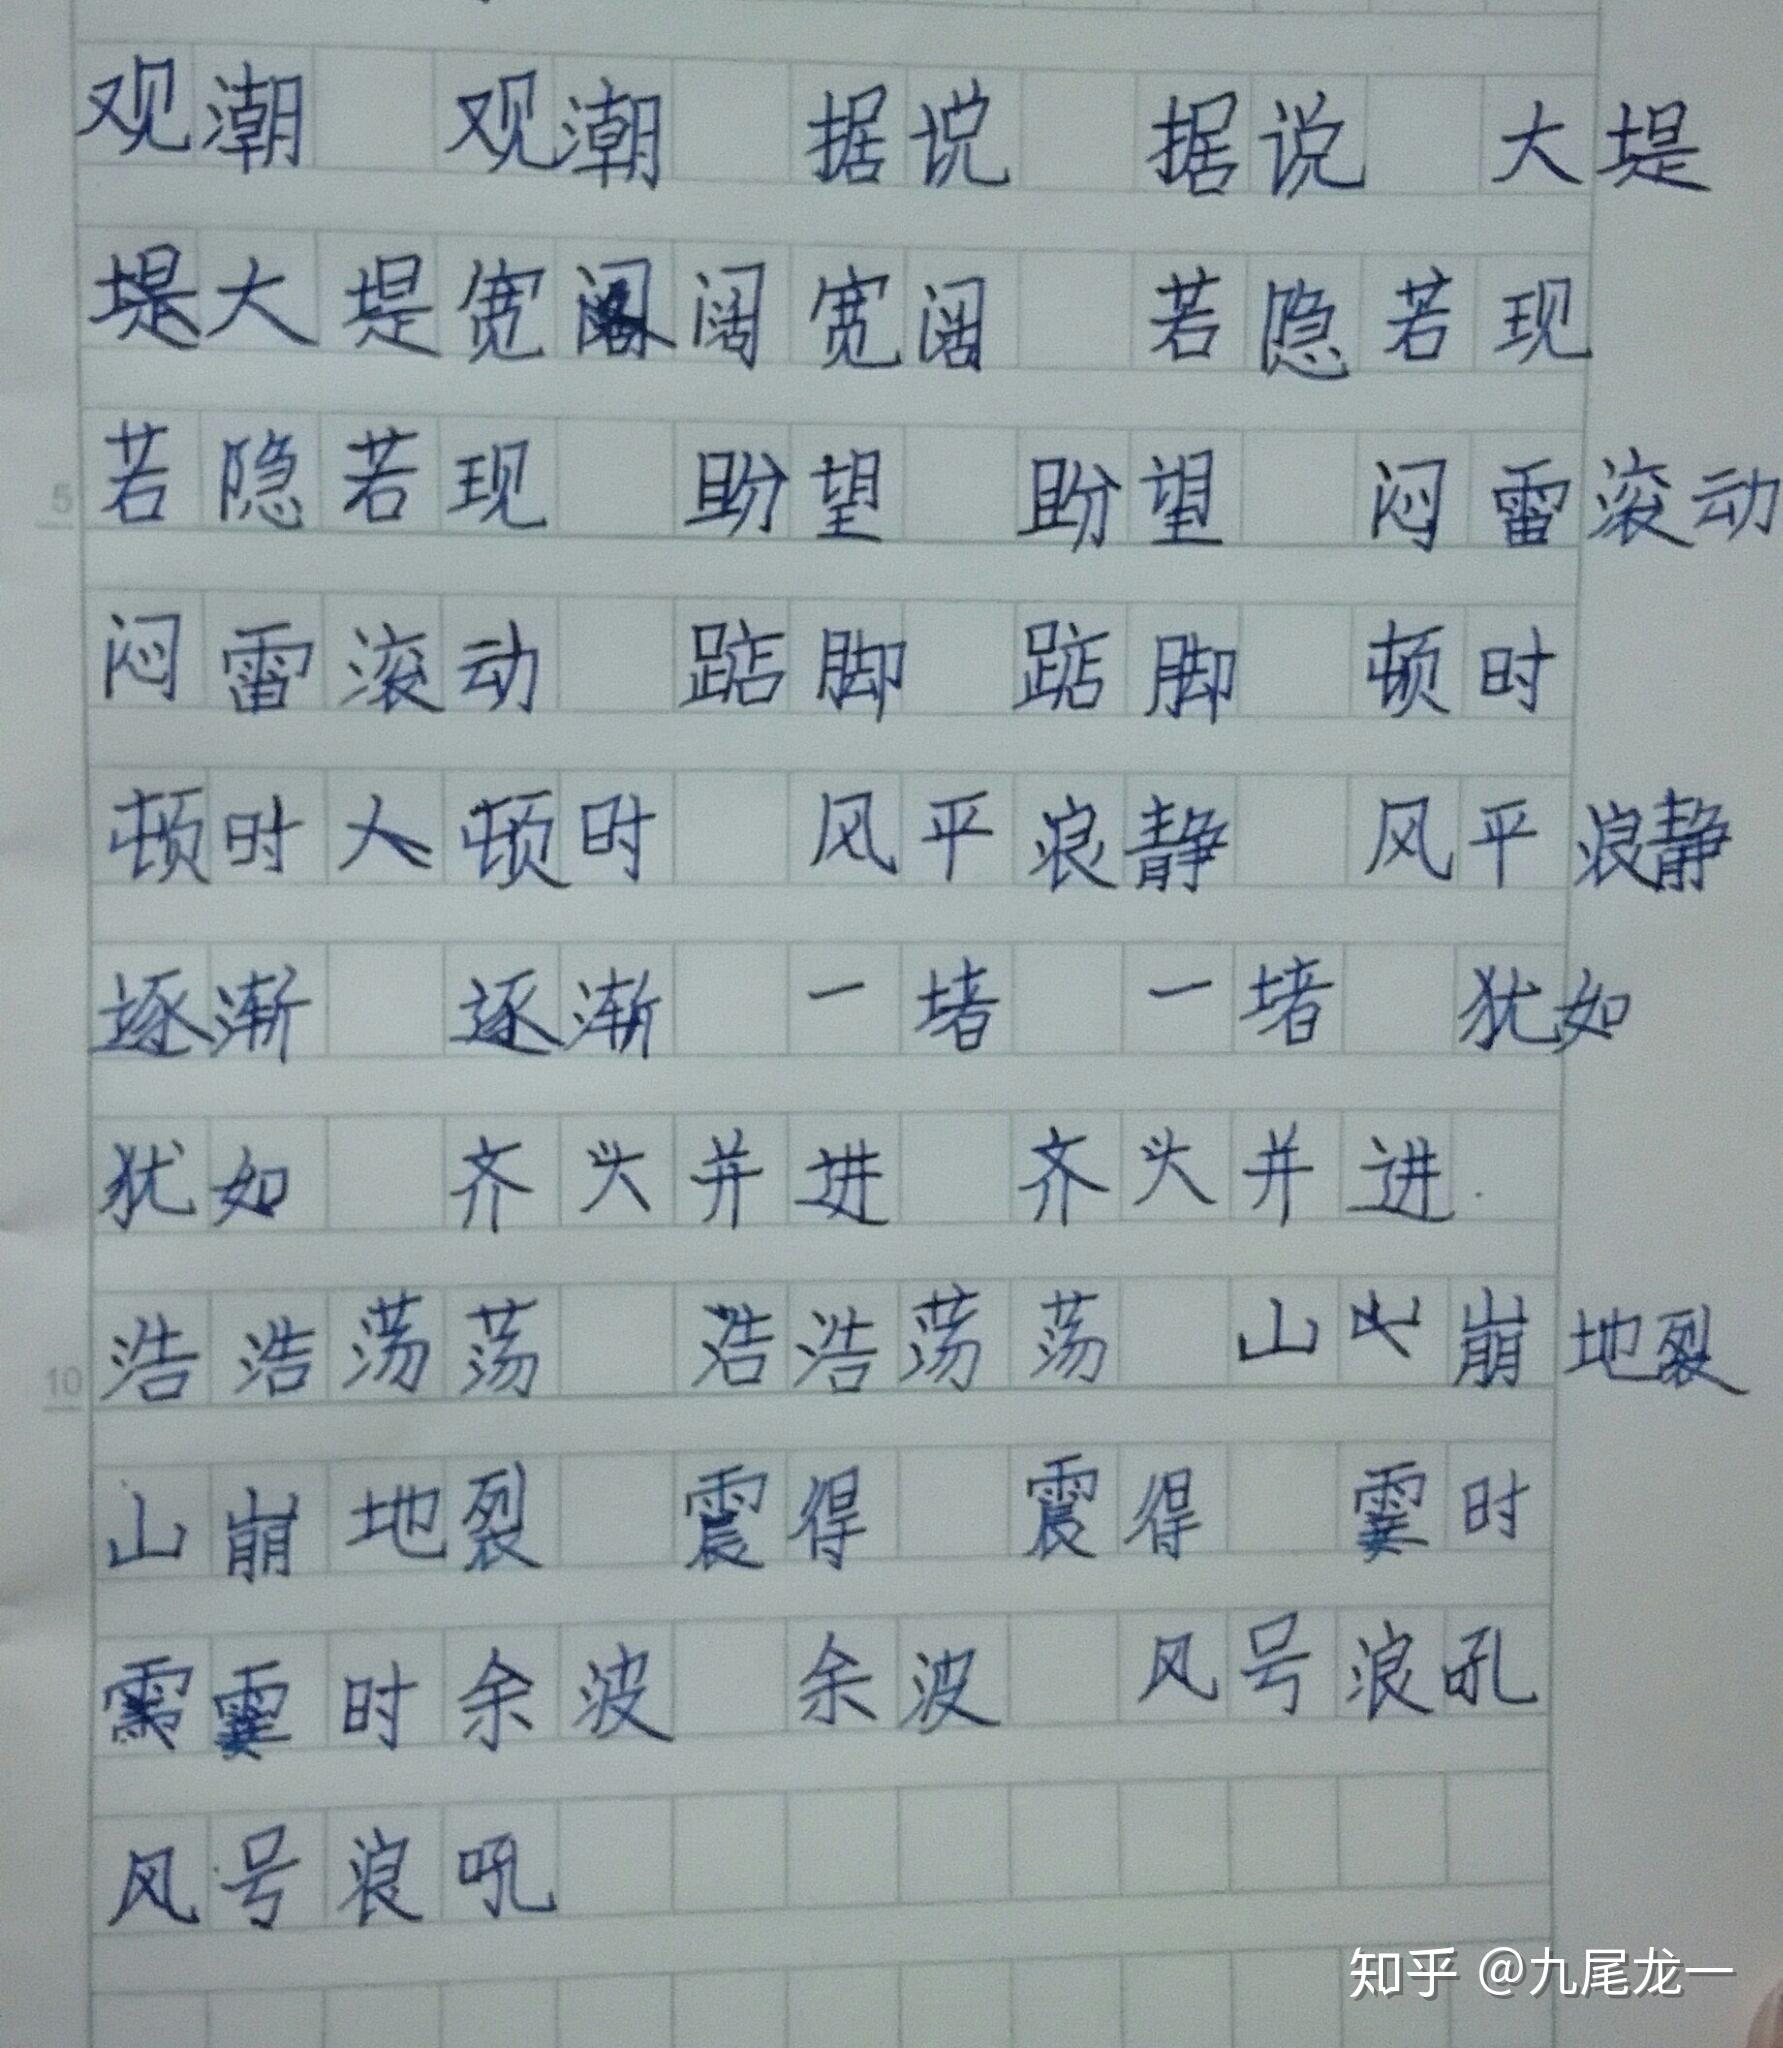 观潮 观潮 据说 据说 大堤
堤大堤宽阔宽阔 若隐若现
5 若隐若现 盼望 盼望 闷雷滚动
闷雷滚动 踮脚 踮脚 顿时
顿时人顿时 风平浪静 风平浪静
逐渐 逐渐 一堵 一堵 犹如
犹如 齐头并进 齐头并进
10 浩浩荡荡 浩浩荡荡 山崩地裂
山崩地裂 震得 震得 霎时
霎时余波 余波 风号浪吼
风号浪吼
知乎 @九尾龙一